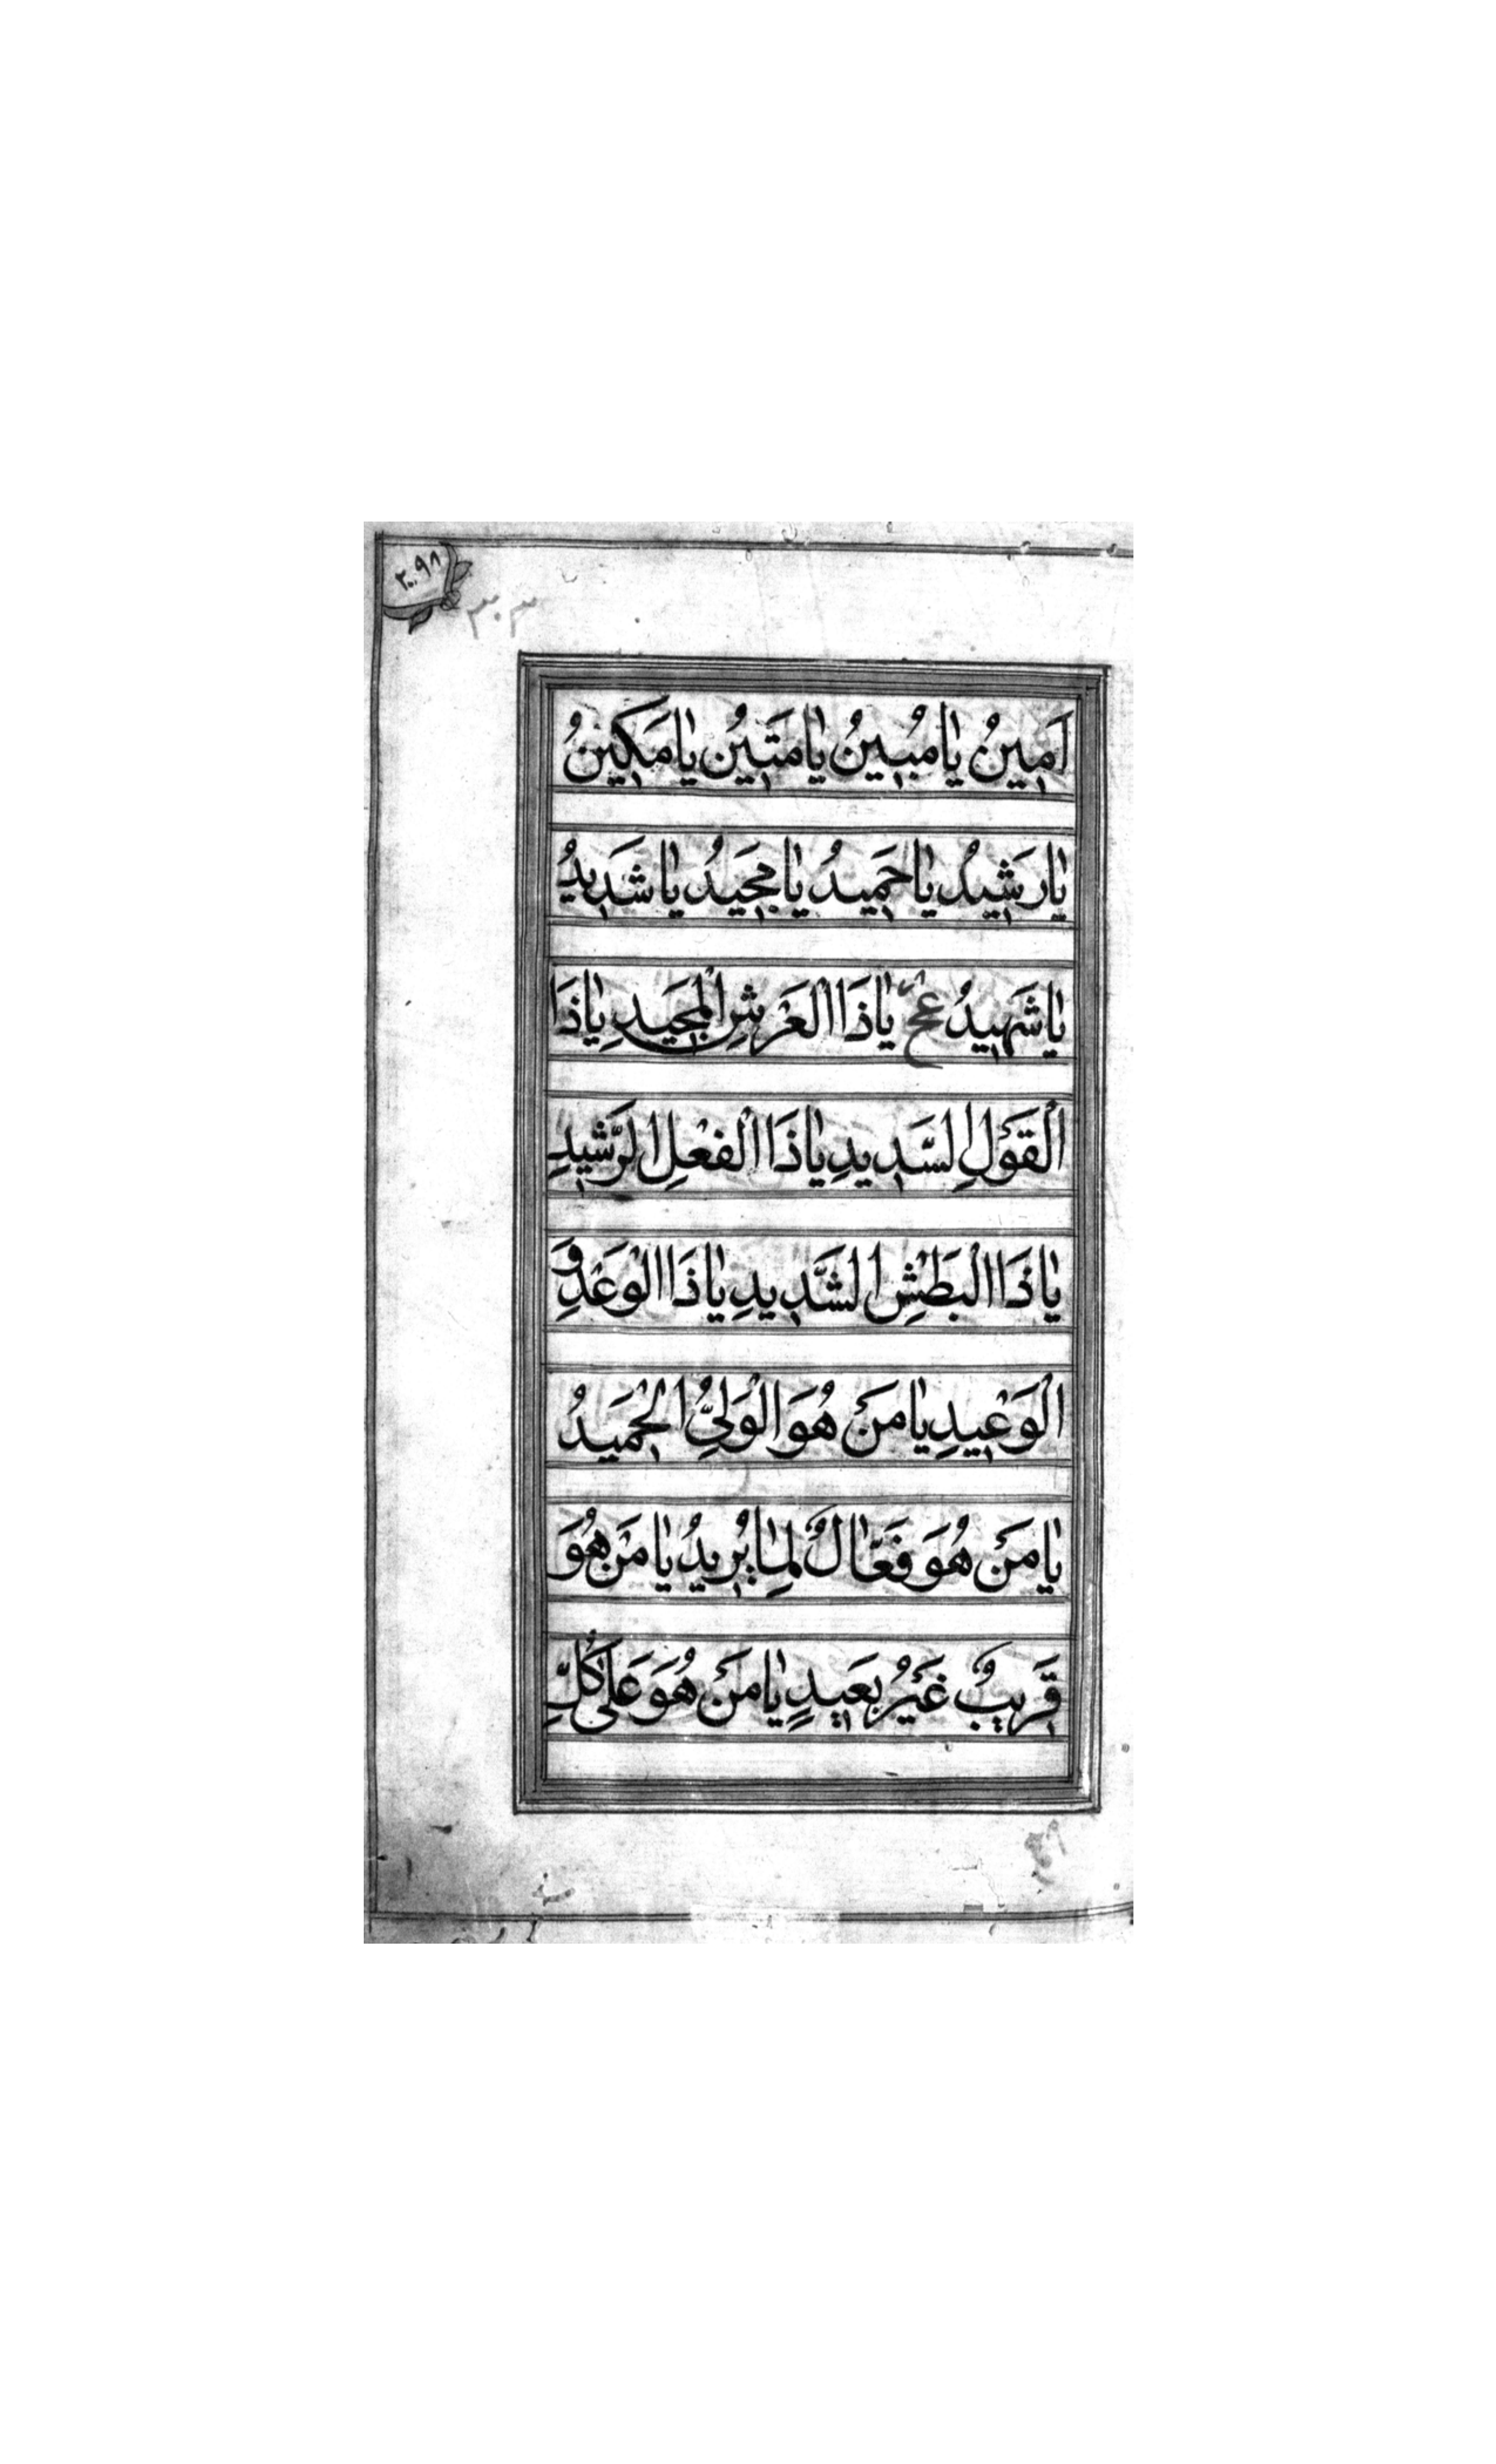 ٢٠٩٨
٣٠٣
اَمِينُ يٰا مُبِينُ يٰا مَتِينُ يٰا مَكِينُ
يٰا رَشِيدُ يٰا حَمِيدُ يٰا مَجِيدُ يٰا شَدِيدُ
يٰا شَهِيدُ عح يٰا ذَا الْعَرْشِ الْمَجِيدِ يٰا ذَا
الْقَوْلِ السَّدِيدِ يٰا ذَا الْفِعْلِ الرَّشِيدِ
يٰا ذَا الْبَطْشِ الشَّدِيدِ يٰا ذَا الْوَعْدِ وَ
الْوَعِيدِ يٰا مَنْ هُوَ الْوَلِيُّ الْحَمِيدُ
يٰا مَنْ هُوَ فَعّٰالٌ لِمٰا يُرِيدُ يٰا مَنْ هُوَ
قَرِيبٌ غَيْرُ بَعِيدٍ يٰا مَنْ هُوَ عَلىٰ كُلِّ